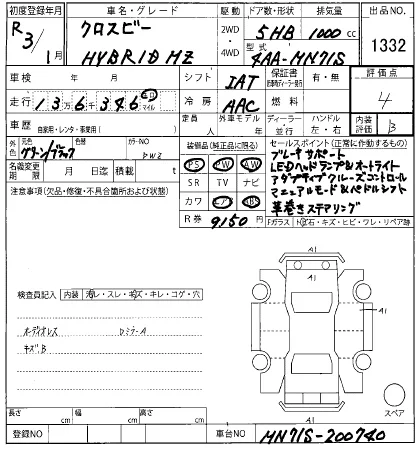 初度登録年月 車名・グレード 駆動 ドア数・形状 排気量 出品NO.
R3/1月 クロスビー 2WD・4WD 5HB 1000cc 1332
HYBRID MZ 型式 4AA-MN71S
車検 年 月 シフト IAT 保証書 有・無 評価点
走行 13万6千346キロ マイル 冷房 AAC 燃料 4
車歴 自家用・レンタ・事業用( ) 定員 人 外車モデル 年 ディーラー 並行 ハンドル 左・右 内装評価 B
外色 元色 グリーン/ブラック カラーNO
名義変更期限 月 日迄 積載 t
注意事項(欠品・修復・不具合箇所および状態)
装備品(純正品に限る)
PS PW AW
SR TV ナビ
カワ エアB ABS
R券 9150円
セールスポイント(正常に作動するもの)
ブレーキサポート
LEDヘッドランプ&オートライト
アダプティブクルーズコントロール
マニュアルモード&パドルシフト
革巻きステアリング
Fガラス トビ石・キズ・ヒビ・ワレ・リペア跡
検査員記入 内装 汚レ・スレ・キズ・キレ・コゲ・穴
オーディオレス Dミラー A
キズB
A1
A1
A1
A1
スペア
長さ cm 幅 cm 高さ cm
登録NO 車台NO MN71S-200740